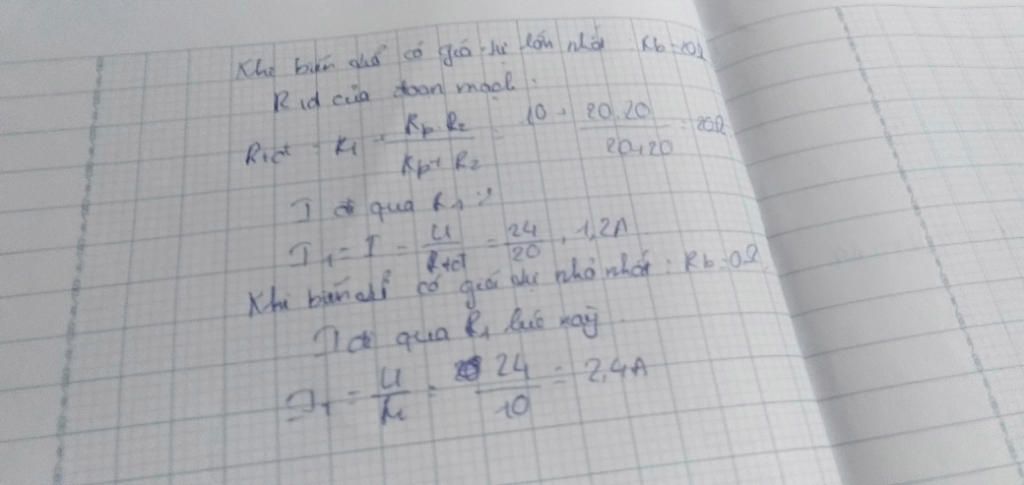 Khi biến chở có giá trị lớn nhất Rb=20Ω
Rtđ của đoạn mạch:
Rtđ = R1 + Rb.R2 / Rb+R2 = 10 + 20.20 / 20+20 = 20Ω
I đ qua R1:
I1 = I = U / Rtđ = 24 / 20 = 1,2A
Khi biến chở có giá trị nhỏ nhất: Rb=0Ω
I đ qua R1 lúc này
I1 = U / R1 = 24 / 10 = 2,4A